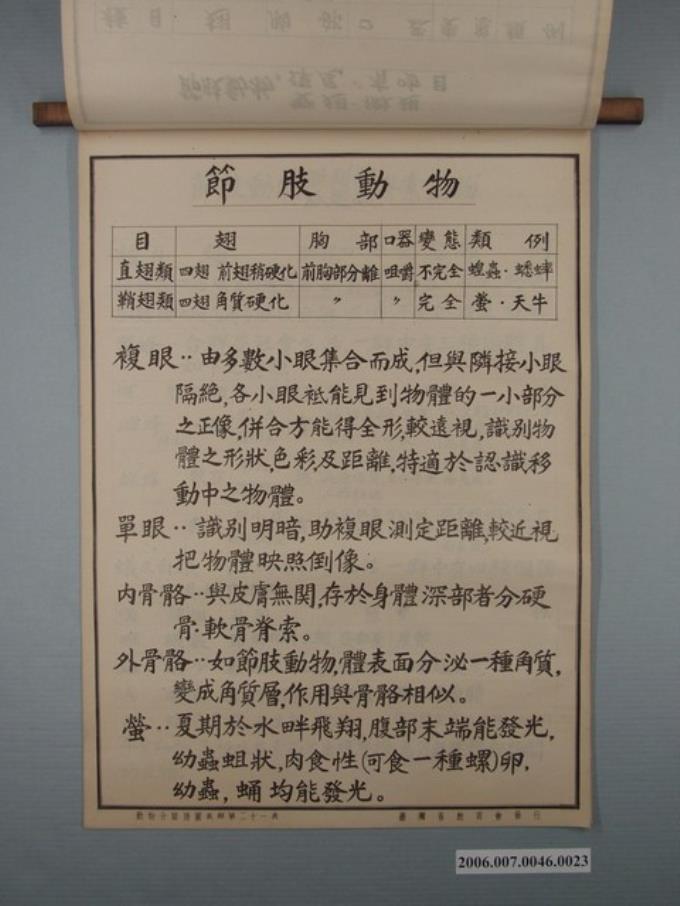 節肢動物
目 翅 胸部 口器 變態 類例
直翅類 四翅 前翅稍硬化 前胸部分離 咀嚼 不完全 蝗蟲·蟋蟀
鞘翅類 四翅角質硬化 〃 〃 完全 螢·天牛
複眼‥由多數小眼集合而成,但與隣接小眼
隔絶,各小眼袛能見到物體的一小部分
之正像,併合方能得全形,較遠視,識別物
體之形狀,色彩及距離,特適於認識移
動中之物體。
單眼‥識別明暗,助複眼測定距離,較近視
把物體映照倒像。
内骨骼‥與皮膚無関,存於身體深部者分硬
骨·軟骨脊索。
外骨骼‥如節肢動物,體表面分泌一種角質,
變成角質層,作用與骨骼相似。
螢‥夏期於水畔飛翔,腹部末端能發光,
幼蟲蛆狀,肉食性(可食一種螺)卵,
幼蟲,蛹均能發光。
臺灣省教育會發行
2006.007.0046.0023